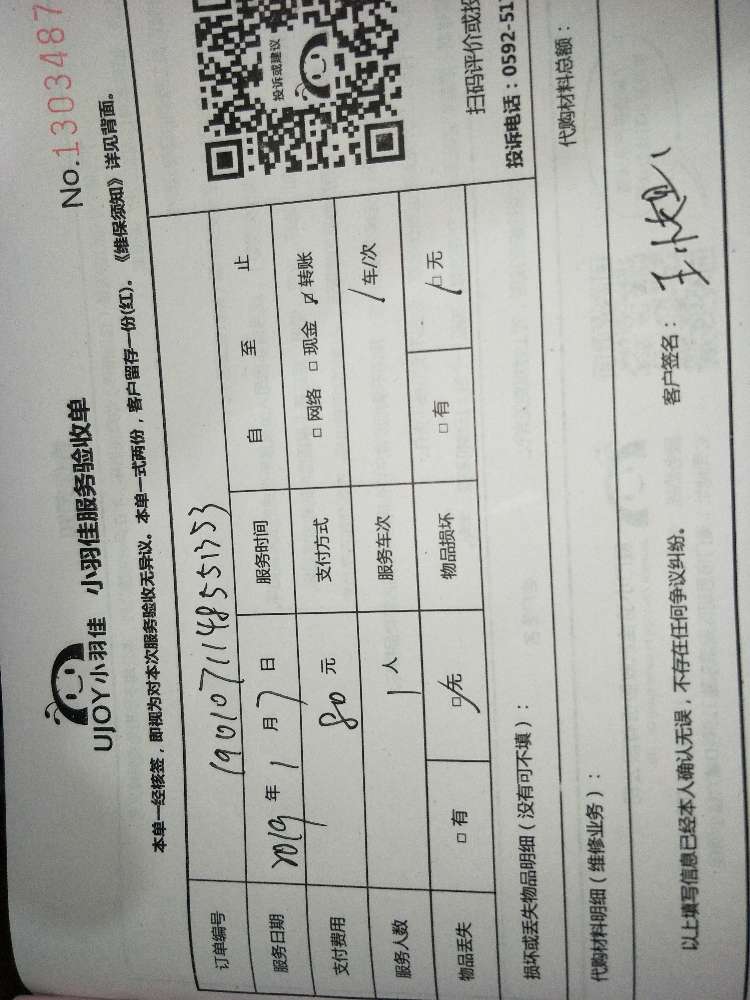 No.1303487
UJOY小羽佳 小羽佳服务验收单
本单一经核签，即视为对本次服务验收无异议。本单一式两份，客户留存一份(红)。《维保须知》详见背面。
订单编号 1901071148551353
服务日期 2019年1月7日 服务时间 自 至 止
支付费用 80元 支付方式 □网络 □现金 ☑转账
服务人数 1人 服务车次 1车/次
物品丢失 □有 ☑无 物品损坏 □有 ☑无
投诉或建议
扫码评价或投
投诉电话：0592-517
损坏或丢失物品明细（没有可不填）：
代购材料明细（维修业务）： 代购材料总额：
以上填写信息已经本人确认无误，不存在任何争议纠纷。 客户签名：